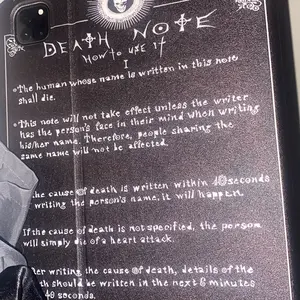 DEATH NOTE
How to use it
I
The human whose name is written in this note
shall die.
This note will not take effect unless the writer
has the person's face in their mind when writing
his/her name. Therefore, people sharing the
same name will not be affected.
the cause of death is written within 40 seconds
writing the person's name, it will happen
If the cause of death is not specified, the person
will simply die of a heart attack.
ter writing the cause of death, details of the
th should be written in the next 6 minutes
40 seconds.